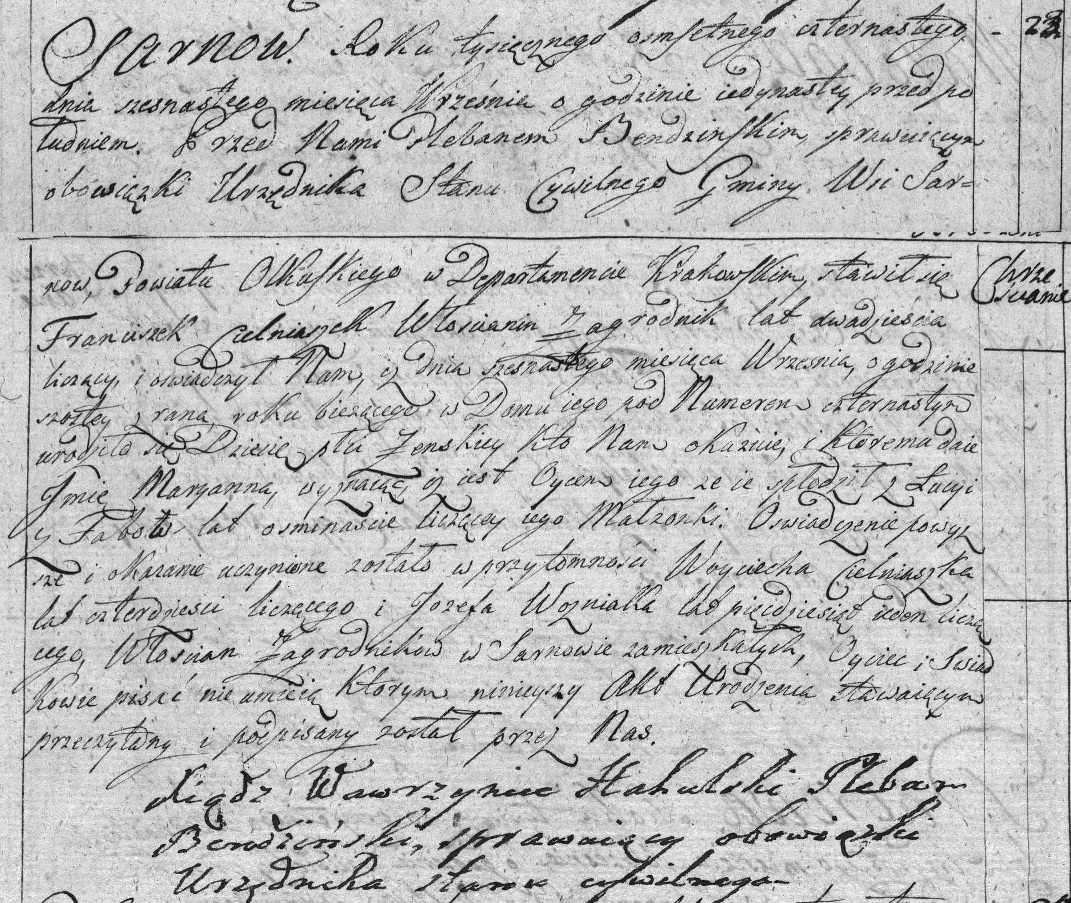 Sarnow. Roku tysięcznego osmsetnego czternastego - 23
dnia szesnastego miesiąca Września o godzinie iedynastey przed po
łudniem. Przed Nami Plebanem Bendzinskim, sprawuiącym
obowiązki Urzędnika Stanu Cywilnego Gminy Wsi Sar=
now, Powiatu Olkuskiego w Departamencie Krakowskim, stawił się
Chrze
scianie
Franciszek Cielniaszek Włoscianin Zagrodnik lat dwadzieścia
liczący, i oswiadczył Nam, iż dnia szesnastego miesiąca Wrzesnia, o godzinie
szostey z rana roku bieżącego, w Domu iego pod Numerem czternastym
urodziło się Dziecie płci Żenskiey kto Nam okazuie, i ktoremu daie
Jmie Maryanna, wyznaiąc iż iest Oycem iego ze ie spłodził z Łucyi
z lat osminascie liczącey iego Małzonki. Oswiadczenie powyz
sze i okazanie uczynione zostało w przytomnosci Woyciecha Cielniaszka
lat czterdziesci liczącego i Jozefa Wozniaka lat pięcdziesiąt ieden licza
cego, Włoscian Zagrodników w Sarnowie zamieszkałych, Oyciec i Swiad
kowie pisać nie umieią ktorym ninieyszy Akt Urodzenia stawaiącym
przeczytany i podpisany został przez Nas.
Xiądz Wawrzyniec Hahulski Pleban
Bendzinski, sprawuiący obowiązki
Urzędnika stanu cywilnego-